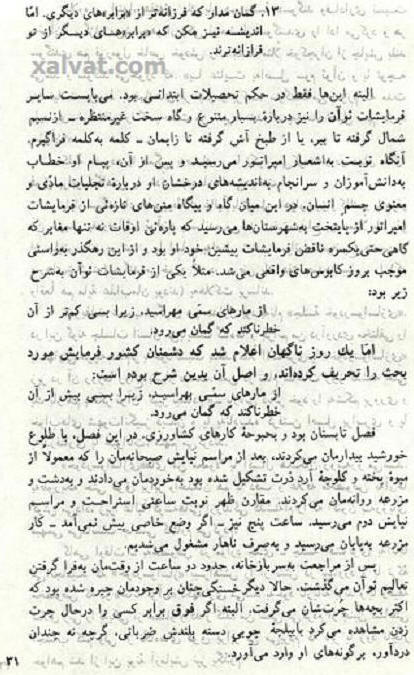 ۱۳. گمان مدار که فرزانه‌تر از دیرابره‌های دیگری. امّا
اندیشه نیز مکن که دیرابره‌هائی دیگر از تو
فرزانه‌ترند.
xalvat.com
البته این‌ها فقط در حکم تحصیلات ابتدائی بود. می‌بایست سایر
فرمایشات توآن را نیز دربارهٔ بسیار متنوع و گاه سخت غیرمنتظره ــ ازنسیم
شمال گرفته تا ببر، یا از طبخ آش گرفته تا زایمان ــ کلمه به‌کلمه فراگیرم.
آنگاه نوبت به‌اشعار امپراتور می‌رسید و پس از آن، پیام او خطاب
به‌دانش‌آموزان و سرانجام به‌اندیشه‌های درخشان او دربارهٔ تجلیات مادّی و
معنوی جسم انسان. در این میان گاه و بیگاه متن‌های تازه‌ئی از فرمایشات
امپراتور از پایتخت به‌شهرستان‌ها می‌رسید که پاره‌ئی اوقات نه تنها مغایر که
گاهی حتی یکسره ناقض فرمایشات پیشین خود او بود و از این رهگذر به‌راستی
موجب بروز کابوس‌های واقعی می‌شد. مثلاً یکی از فرمایشات توآن به‌شرح
زیر بود:
از مارهای سمّی مهراسید. زیرا بسی کم‌تر از آن
خطرناکند که گمان می‌رود.
امّا یك روز ناگهان اعلام شد که دشمنان کشور فرمایش مورد
بحث را تحریف کرده‌اند، و اصل آن بدین شرح بوده است:
از مارهای سمّی بهراسید. زیرا بسی بیش از آن
خطرناکند که گمان می‌رود.
فصل تابستان بود و بحبوحهٔ کارهای کشاورزی. در این فصل، با طلوع
خورشید بیدارمان می‌کردند، بعد از مراسم نیایش صبحانه‌مان را که معمولاً از
میوهٔ پخته و کلوچهٔ آرد ذرت تشکیل شده بود به‌خوردمان می‌دادند و به‌دشت و
مزرعه روانه‌مان می‌کردند. مقارن ظهر نوبت ساعتی استراحت و مراسم
نیایش دوم می‌رسید. ساعت پنج نیز ــ اگر وضع خاصی پیش نمی‌آمد ــ کار
مزرعه به‌پایان می‌رسید و به‌صرف ناهار مشغول می‌شدیم.
پس از مراجعت به‌سربازخانه، حدود دو ساعت از وقت‌مان به‌فرا گرفتن
تعالیم توآن می‌گذشت. حالا دیگر خستگی‌چنان بر وجودمان چیره شده بود که
اکثر بچه‌ها چرت‌شان می‌گرفت. البته اگر فوق برابر کسی را درحال چرت
زدن مشاهده می‌کرد با بیلچهٔ چوبی دسته بلندش ضرباتی، گرچه نه چندان
دردآور، برگونه‌های او وارد می‌آورد.
۳۱